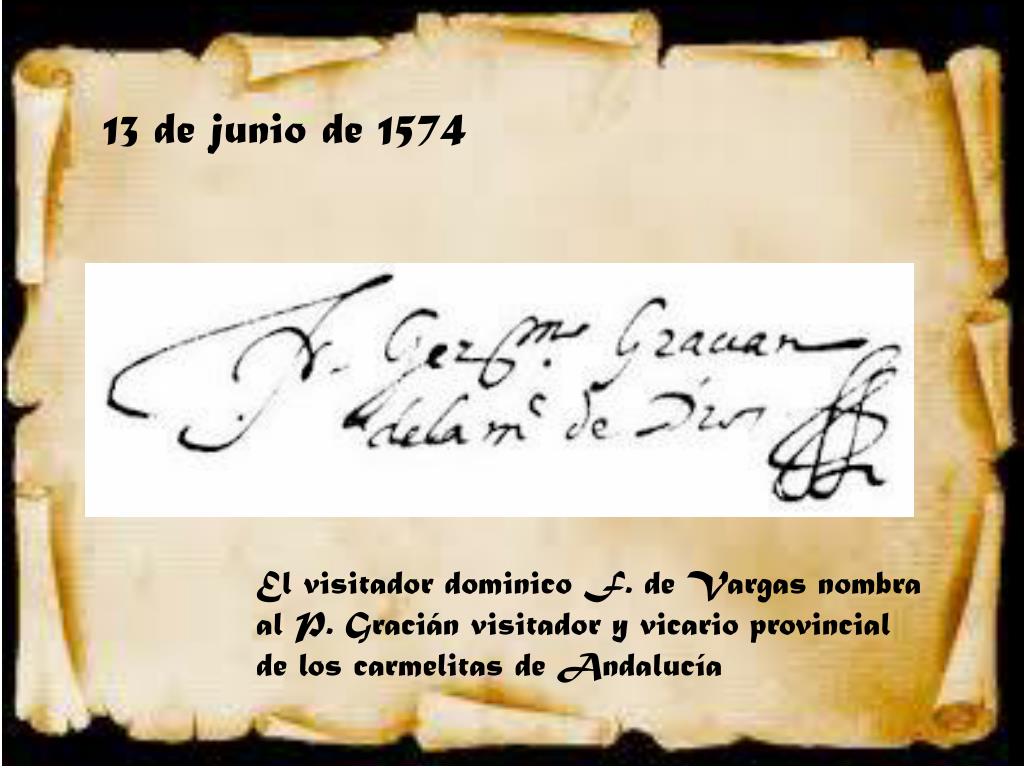 13 de junio de 1574
Fr. Germo. Gracian
de la me de Dios
El visitador dominico F. de Vargas nombra
al P. Gracián visitador y vicario provincial
de los carmelitas de Andalucía